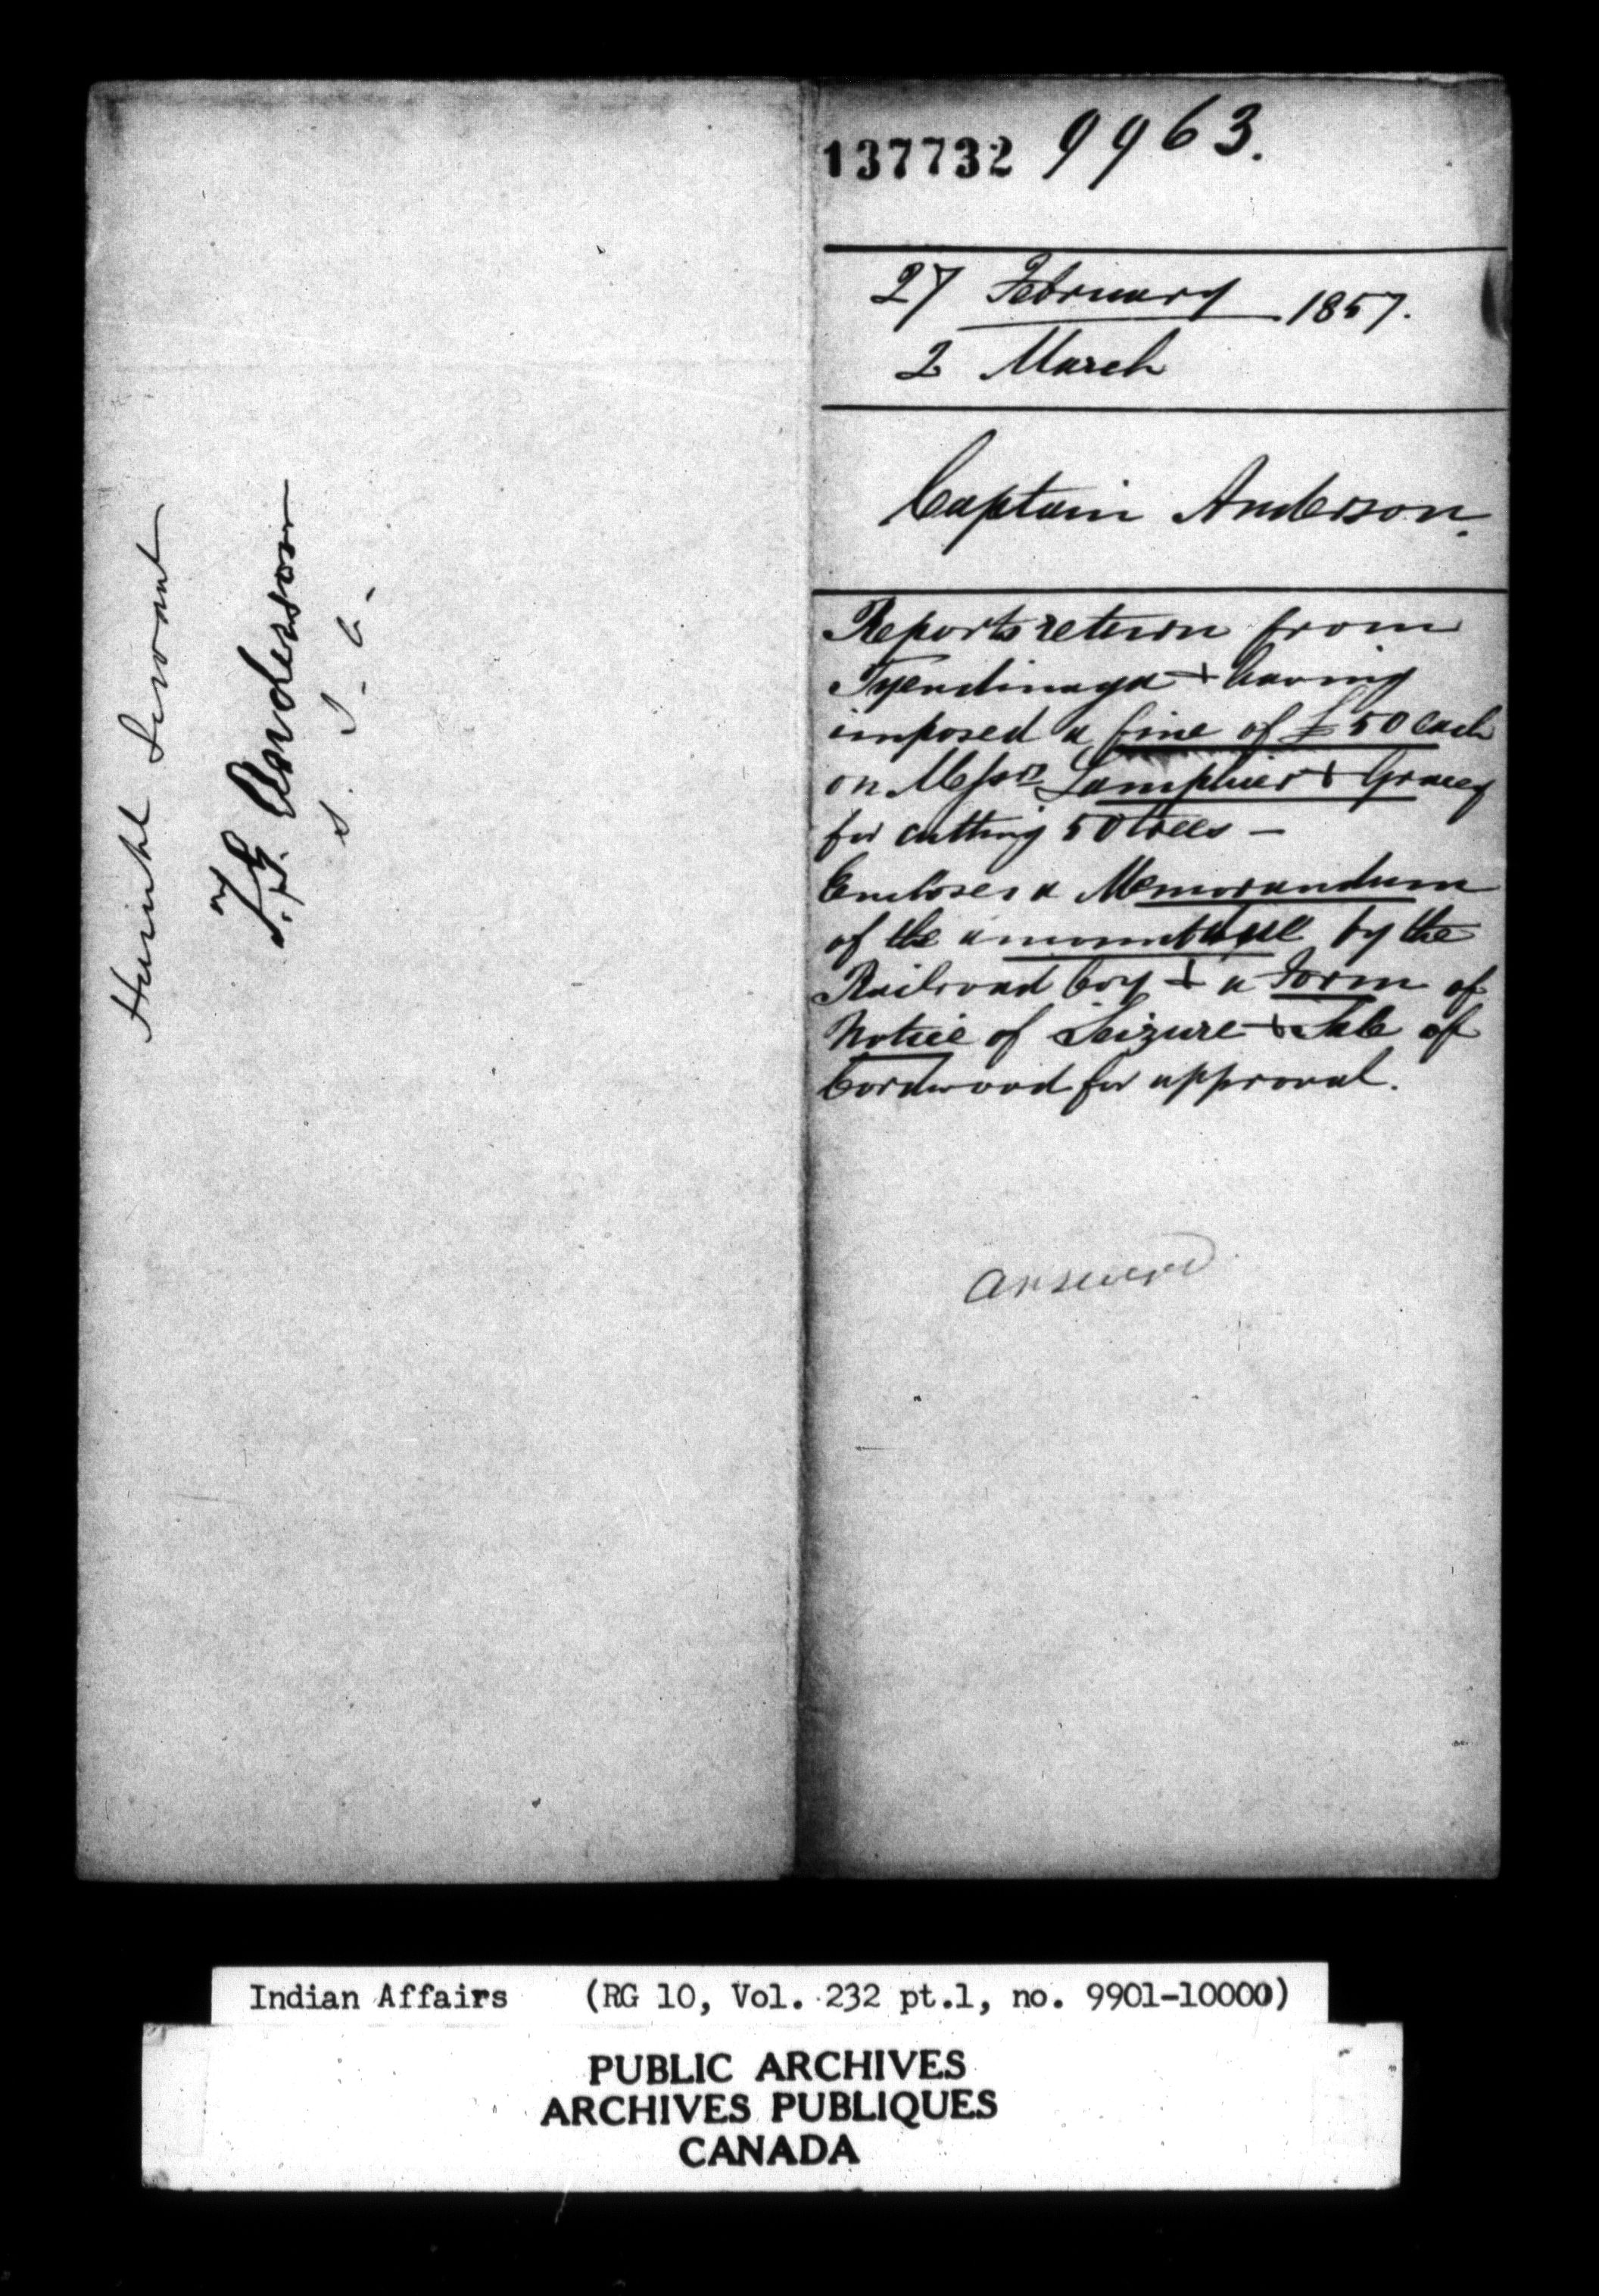 Humble Servant
T. G. Anderson
S. I. A.
137732 9963.
27 February 1857.
2 March
Captain Anderson.
Reports return from
Tyendinaga & having
imposed a fine of £50 each
on Messrs Lamphier & Gracey
for cutting 50 trees —
Encloses a Memorandum
of the amount due by the
Railroad Coy & a Form of
Notice of Seizure & Sale of
Cordwood for approval.
answered
Indian Affairs (RG 10, Vol. 232 pt.1, no. 9901-10000)
PUBLIC ARCHIVES
ARCHIVES PUBLIQUES
CANADA